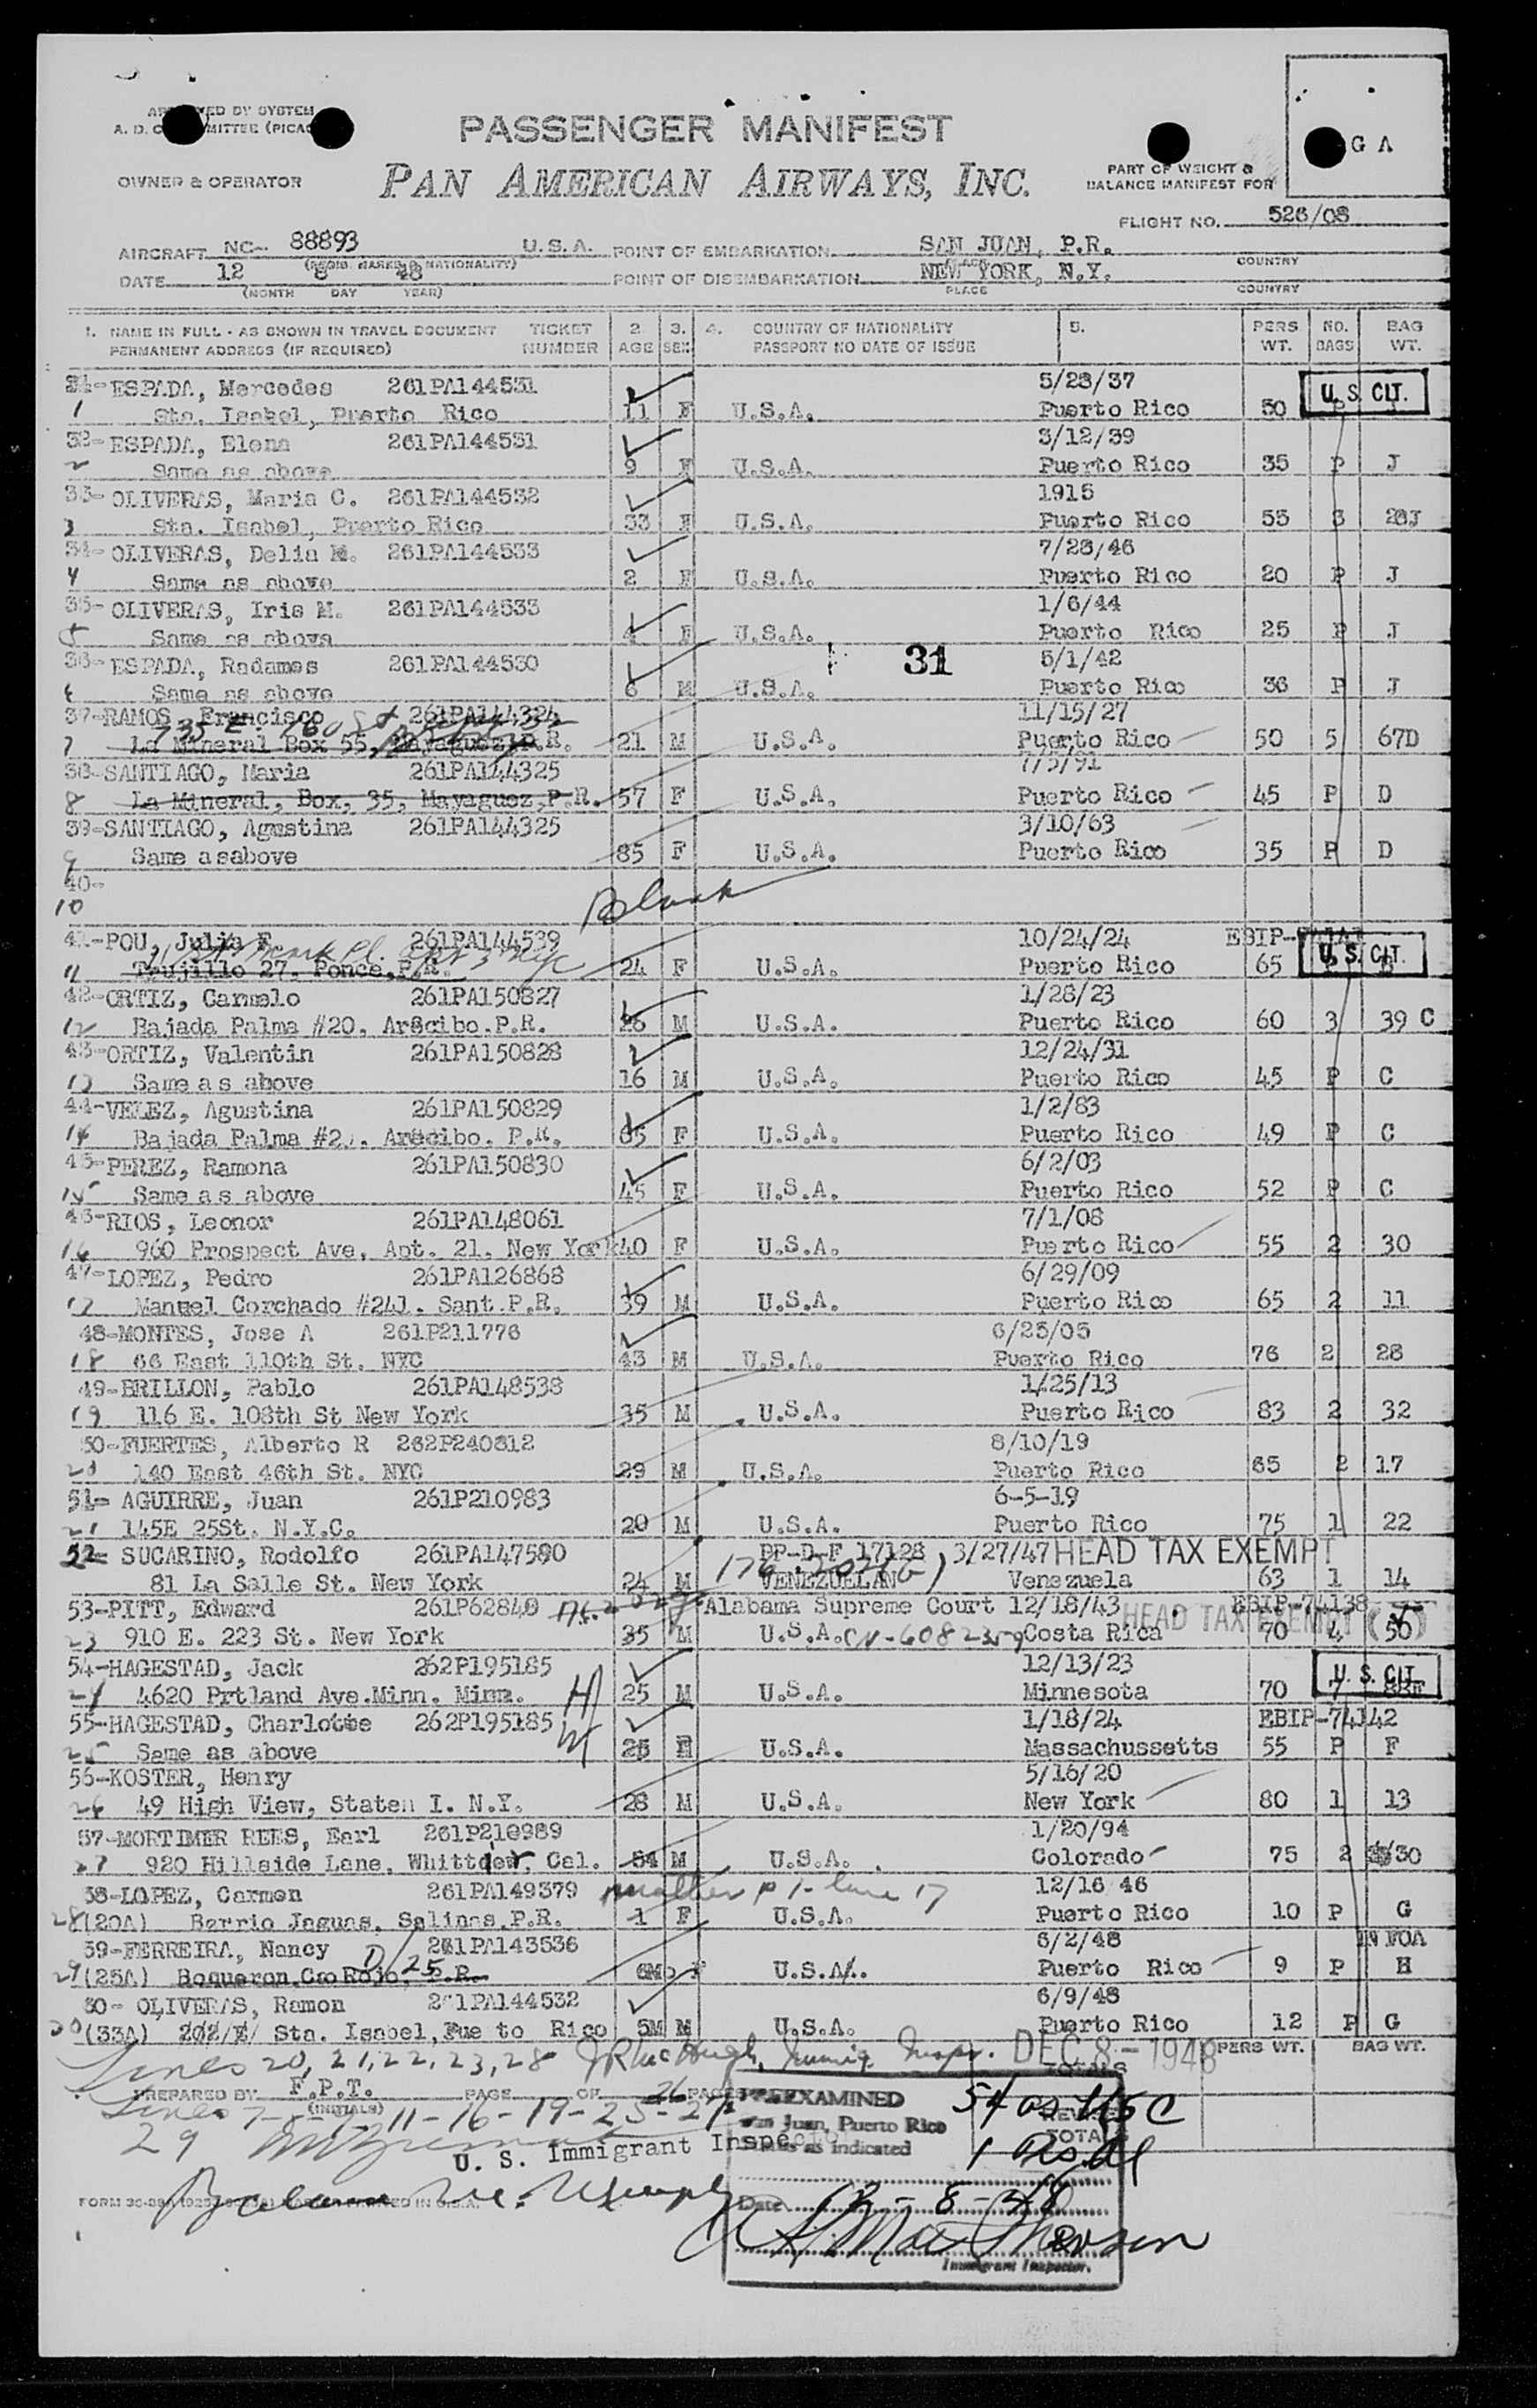 APPROVED BY SYSTEM
A. D. COMMITTEE (PICAO)
PASSENGER MANIFEST
PAN AMERICAN AIRWAYS, INC.
OWNER & OPERATOR
PART OF WEIGHT &
BALANCE MANIFEST FOR
G A
FLIGHT NO. 526/08
AIRCRAFT NC- 88893 U.S.A. POINT OF EMBARKATION SAN JUAN, P.R.
(REGIS. MARKS & NATIONALITY) PLACE COUNTRY
DATE 12 8 48 POINT OF DISEMBARKATION NEW YORK, N.Y.
(MONTH DAY YEAR) PLACE COUNTRY
1. NAME IN FULL - AS SHOWN IN TRAVEL DOCUMENT TICKET 2. 3. 4. COUNTRY OF NATIONALITY 5. PERS NO. BAG
PERMANENT ADDRESS (IF REQUIRED) NUMBER AGE SEX PASSPORT NO DATE OF ISSUE WT. BAGS WT.
31-ESPADA, Mercedes 261PA144531 5/28/37 U.S. CIT.
1 Sta. Isabel, Puerto Rico 11 F U.S.A. Puerto Rico 50 P J
32-ESPADA, Elena 261PA144531 3/12/39
2 Same as above 9 F U.S.A. Puerto Rico 35 P J
33-OLIVERAS, Maria C. 261PA144532 1915
3 Sta. Isabel, Puerto Rico 33 F U.S.A. Puerto Rico 55 3 28J
34-OLIVERAS, Delia M. 261PA144533 7/28/46
4 Same as above 2 F U.S.A. Puerto Rico 20 P J
35-OLIVERAS, Iris M. 261PA144533 1/6/44
5 Same as above 4 F U.S.A. Puerto Rico 25 P J
31
36-ESPADA, Radames 261PA144530 5/1/42
6 Same as above 6 M U.S.A. Puerto Rico 36 P J
37-RAMOS Francisco 261PA144324 11/15/27
735 E. 160 St
7 La Mineral Box 55, Mayaguez, P.R. 21 M U.S.A. Puerto Rico 50 5 67D
38-SANTIAGO, Maria 261PA144325 7/5/91
8 La Mineral, Box, 35, Mayaguez, P.R. 57 F U.S.A. Puerto Rico 45 P D
39-SANTIAGO, Agustina 261PA144325 3/10/63
9 Same a sabove 85 F U.S.A. Puerto Rico 35 P D
40-
10 Blank
41-POU, Julia F. 261PA144539 10/24/24 EBIP- U.S. CIT.
Mark Pl. Apt 3 NYC
11 Trujillo 27. Ponce, P.R. 24 F U.S.A. Puerto Rico 65
42-ORTIZ, Carmelo 261PA150827 1/28/23
12 Bajada Palma #20, Arecibo.P.R. 26 M U.S.A. Puerto Rico 60 3 39 C
43-ORTIZ, Valentin 261PA150828 12/24/31
13 Same a s above 16 M U.S.A. Puerto Rico 45 P C
44-VELEZ, Agustina 261PA150829 1/2/83
14 Bajada Palma #2 . Arecibo. P.R. 65 F U.S.A. Puerto Rico 49 P C
45-PEREZ, Ramona 261PA150830 6/2/03
15 Same a s above 45 F U.S.A. Puerto Rico 52 P C
46-RIOS, Leonor 261PA148061 7/1/08
16 960 Prospect Ave, Apt. 21. New York 40 F U.S.A. Puerto Rico 55 2 30
47-LOPEZ, Pedro 261PA126868 6/29/09
17 Manuel Corchado #241. Sant.P.R. 39 M U.S.A. Puerto Rico 65 2 11
48-MONTES, Jose A 261P211776 6/25/05
18 66 East 110th St. NYC 43 M U.S.A. Puerto Rico 76 2 28
49-BRILLON, Pablo 261PA148538 1/25/13
19 116 E. 108th St New York 35 M U.S.A. Puerto Rico 83 2 32
50-FUERTES, Alberto R 262P240812 8/10/19
20 140 East 46th St. NYC 29 M U.S.A. Puerto Rico 65 2 17
51- AGUIRRE, Juan 261P210983 6-5-19
21 145E 25St. N.Y.C. 29 M U.S.A. Puerto Rico 75 1 22
52- SUCARINO, Rodolfo 261PA147580 PP-D-F 17128 3/27/47 HEAD TAX EXEMPT
81 La Salle St. New York 24 M VENEZUELAN Venezuela 63 1 14
53-PITT, Edward 261P62840 Alabama Supreme Court 12/18/43 EBIP-74138
HEAD TAX EXEMPT
23 910 E. 223 St. New York 35 M U.S.A. CN-6082359 Costa Rica 70 4 56
54-HAGESTAD, Jack 262P195185 12/13/23 U.S. CIT.
24 4620 Prtland Ave.Minn. Minn. H 25 M U.S.A. Minnesota 70
55-HAGESTAD, Charlotte 262P195185 1/18/24 EBIP-74142
25 Same as above W 25 F U.S.A. Massachussetts 55 P F
56-KOSTER, Henry 5/16/20
26 49 High View, Staten I. N.Y. 28 M U.S.A. New York 80 1 13
57-MORTIMER REES, Earl 261P210989 1/20/94
27 920 Hillside Lane. Whittier, Cal. 54 M U.S.A. Colorado 75 2 30
58-LOPEZ, Carmen 261PA149379 mother p 1- line 17 12/16 46
28 (20A) Barrio Jaguas, Salinas, P.R. 1 F U.S.A. Puerto Rico 10 P G
59-FERREIRA, Nancy 261PA143536 6/2/48 IN FOA
29 (25A) Boqueron, Cabo Rojo, P.R. 6M F U.S.A. Puerto Rico 9 P H
60- OLIVERAS, Ramon 261PA144532 6/9/48
30 (33A) Sta. Isabel, Pue to Rico 5M M U.S.A. Puerto Rico 12 P G
Lines 20, 21, 22, 23, 28 Immig Inspr. DEC 8 - 1948 PERS WT. BAG WT.
TOTALS
PREPARED BY F.P.T. PAGE OF PAGES
(INITIALS)
Lines 7-8-9-11-16-19-25-27
29
U. S. Immigrant Inspector
PREEXAMINED
San Juan, Puerto Rico
Status as indicated
54 as USC
REVISED
TOTALS
1 as al
Date 12-8-48
Immigrant Inspector.